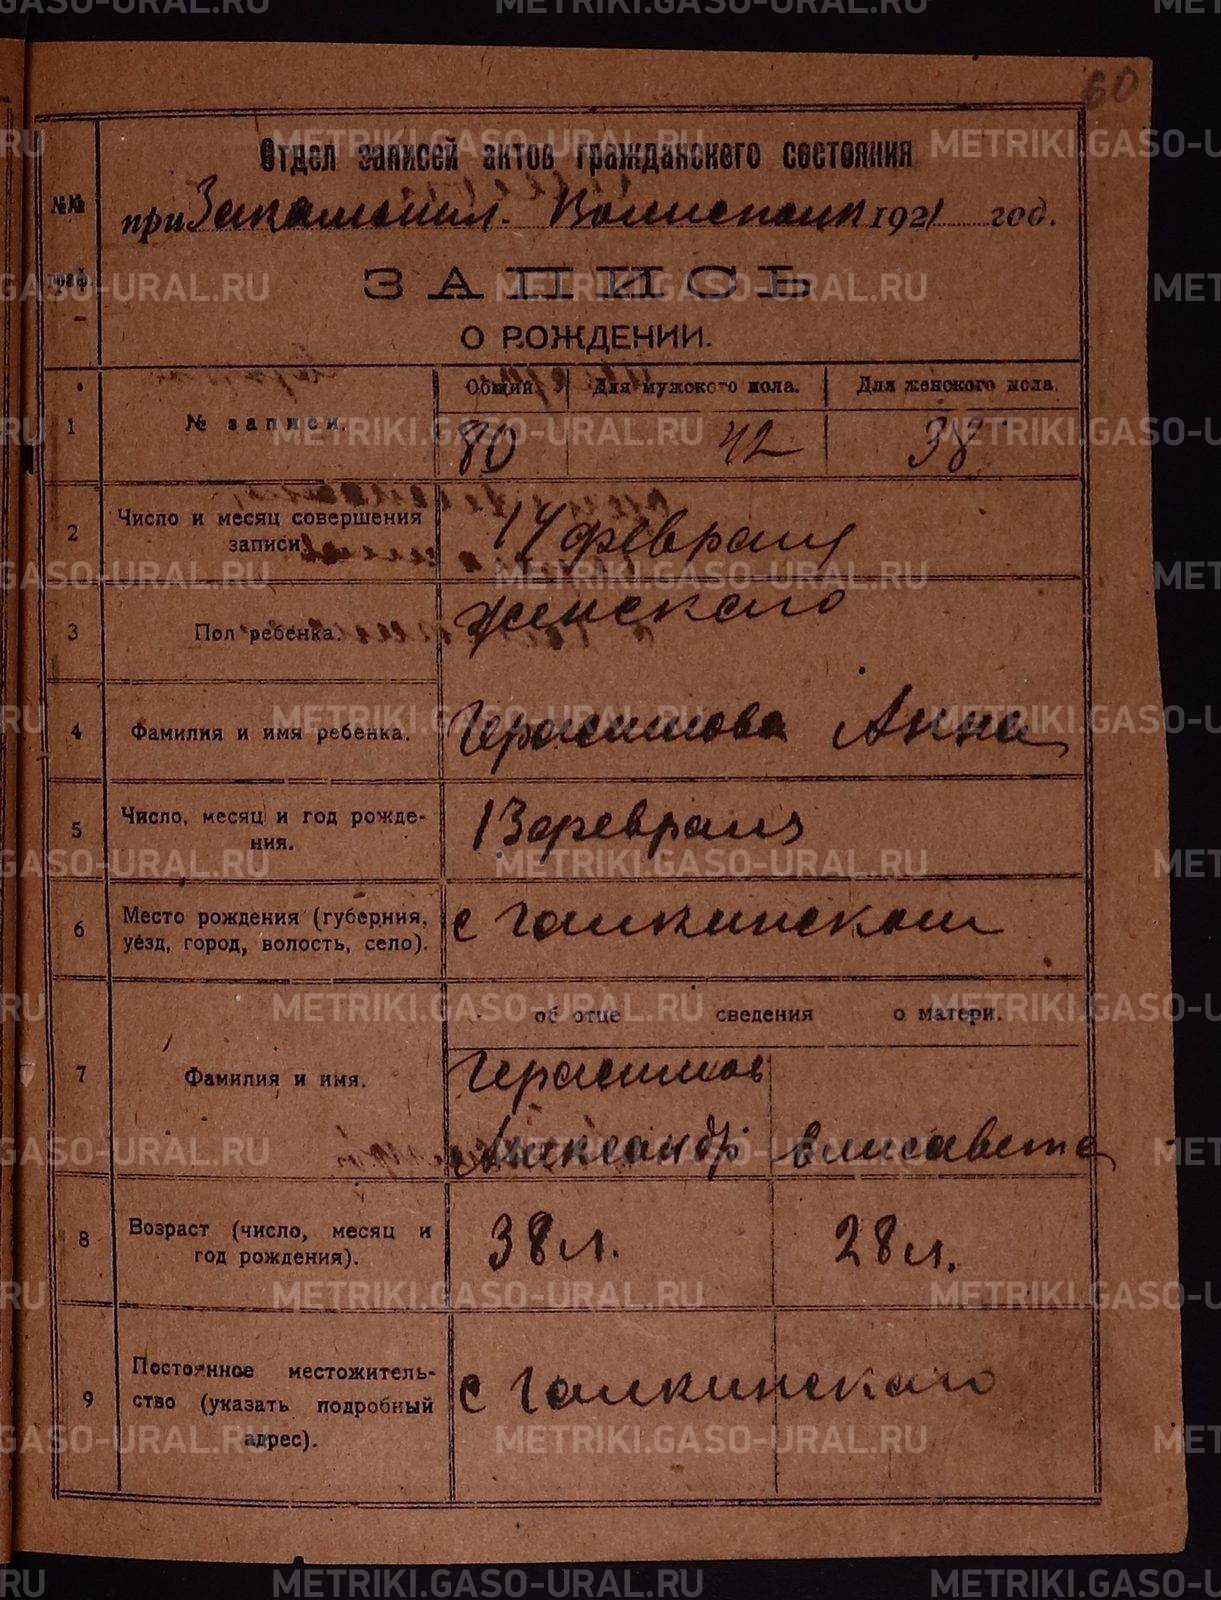 60
Отдел записей актов гражданского состояния
№№ граф.
при Закаменил. Волисполк 1921 год.
ЗАПИСЬ
О РОЖДЕНИИ.
1 № записи. Общий. Для мужского пола. Для женского пола.
80 42 38
2 Число и месяц совершения записи. 17 февраля
3 Пол ребенка. женскаго
4 Фамилия и имя ребенка. Герасимова Анна
5 Число, месяц и год рожде-
ния. 13 февраля
6 Место рождения (губерния,
уезд, город, волость, село). с Галкинском
об отце сведения о матери.
7 Фамилия и имя. Герасимов
Александр Елисавета
8 Возраст (число, месяц и
год рождения). 38 л. 28 л.
9 Постоянное местожитель-
ство (указать подробный
адрес). с Галкинскаго
METRIKI.GASO-URAL.RU